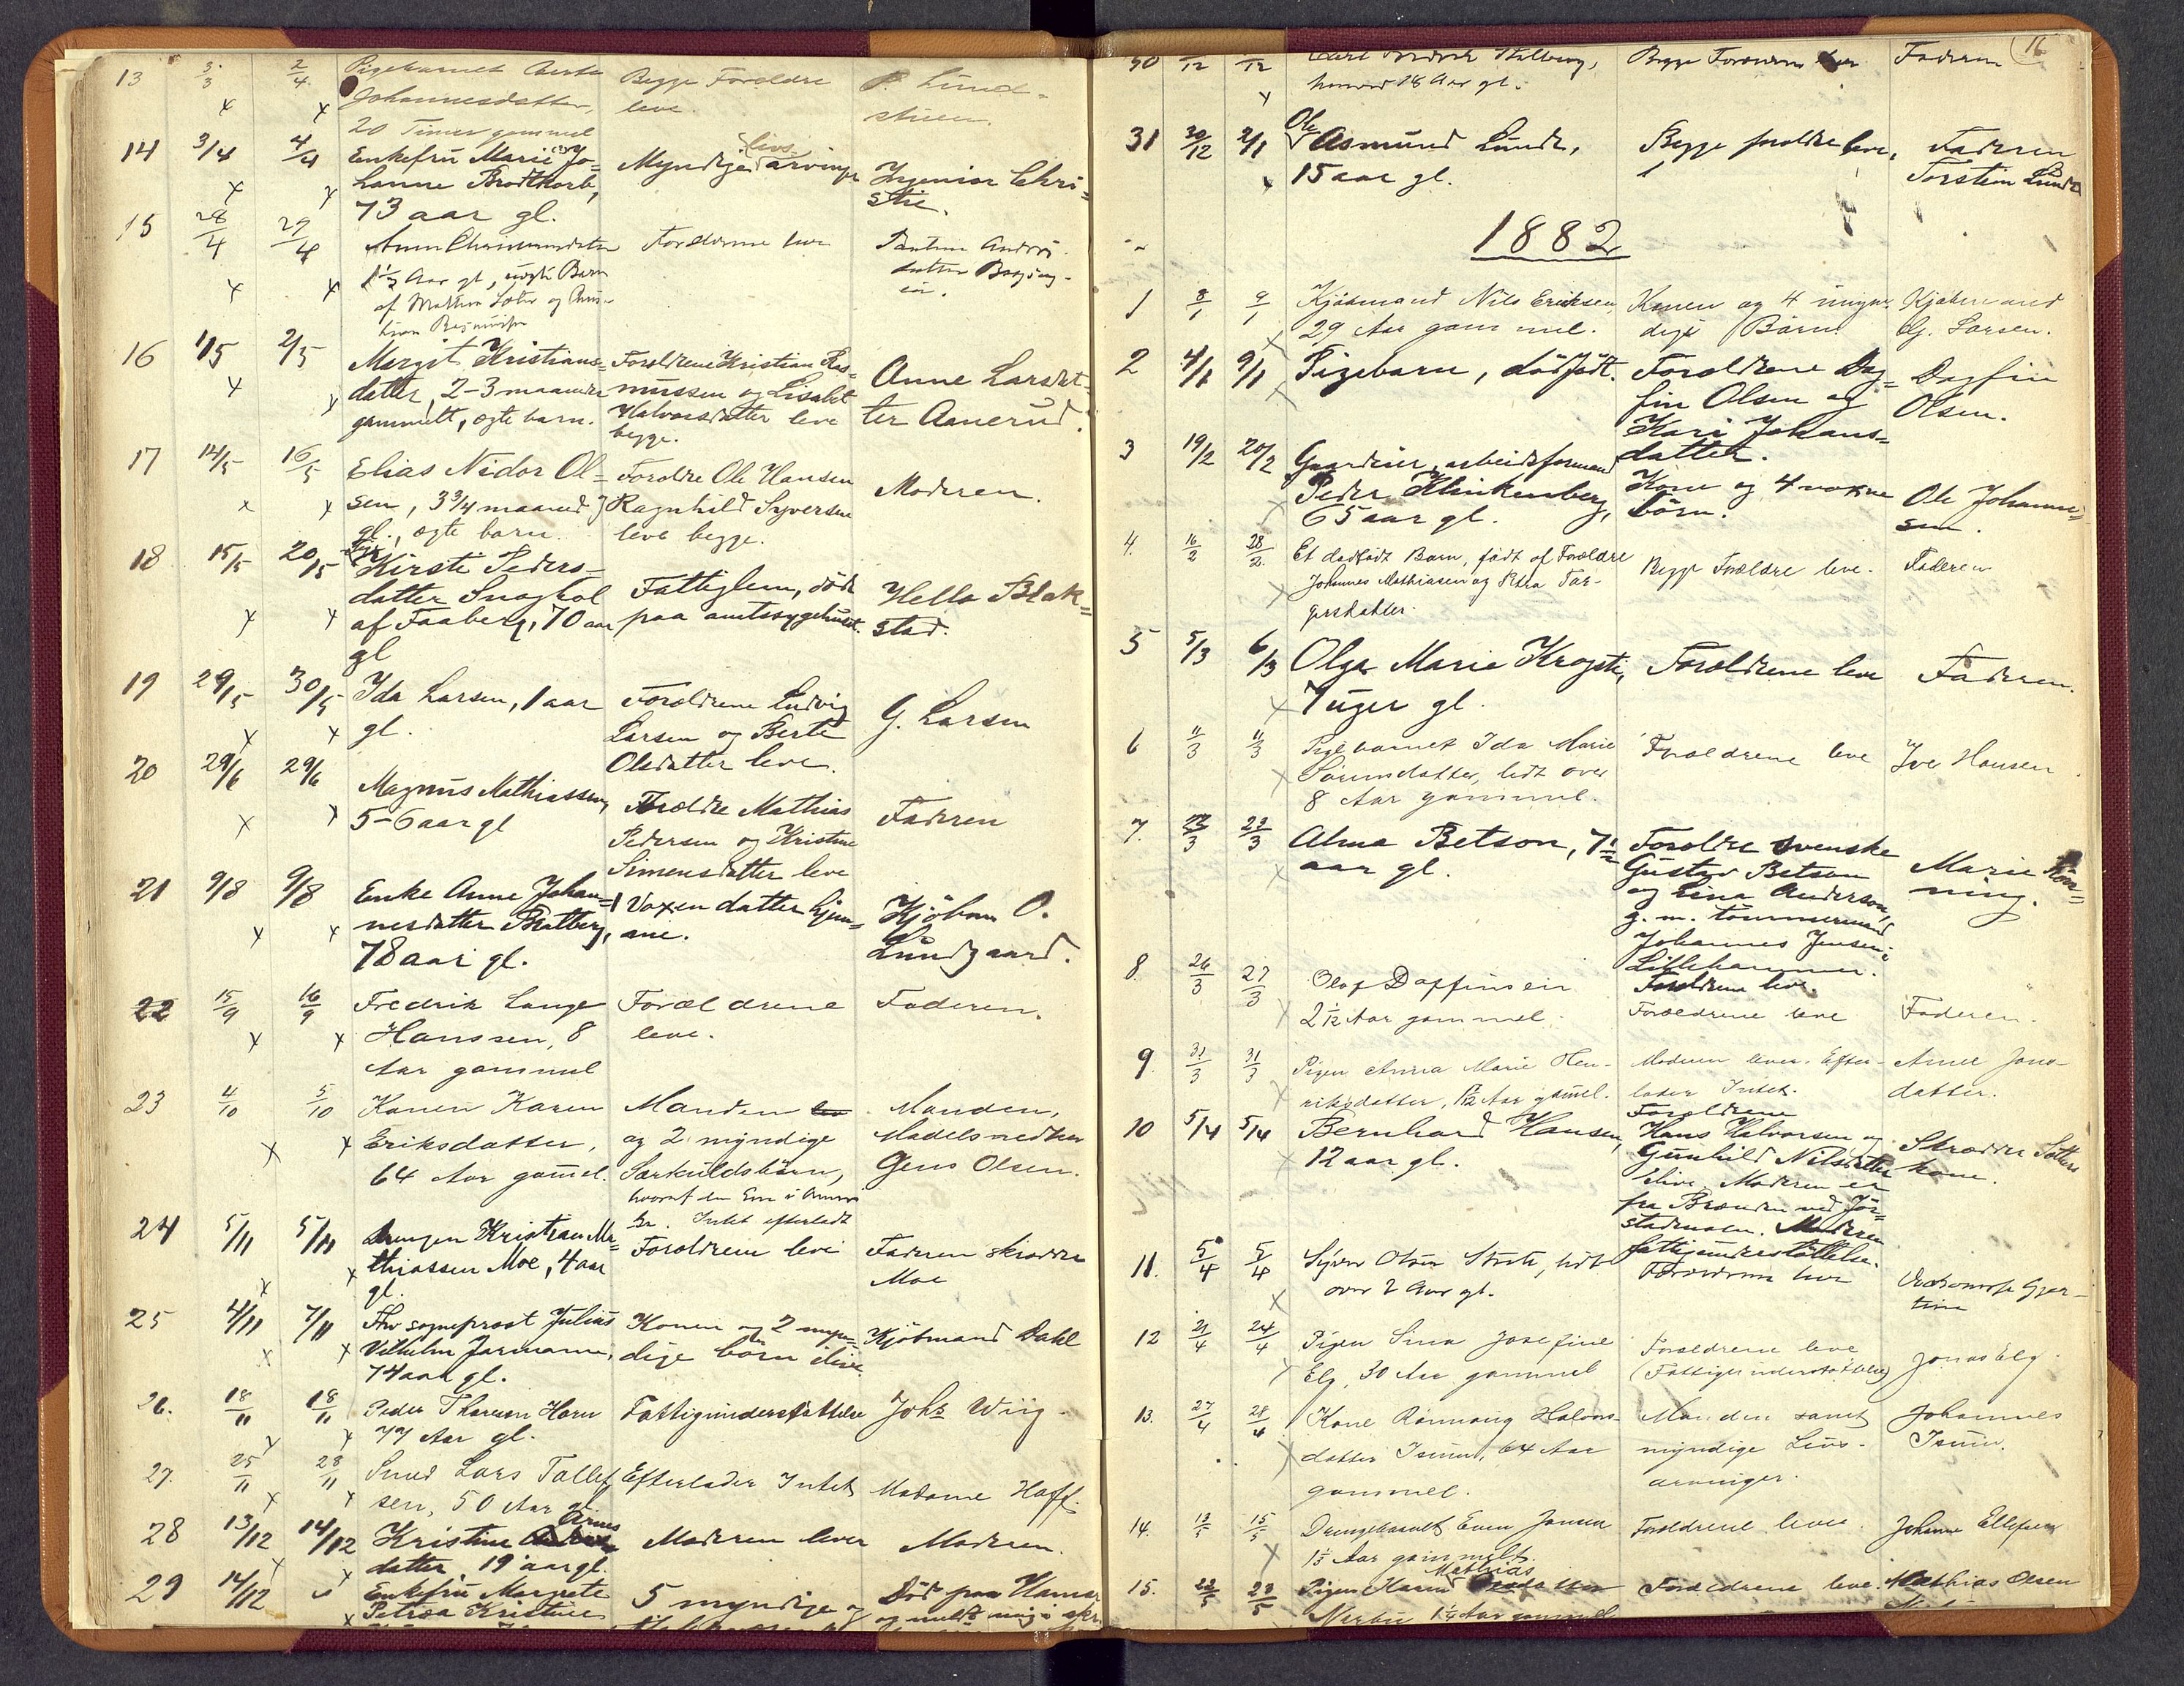 13 3/3 2/4 Pigebarnet Berte Begge Forældre P. Lund-
Johannesdatter, leve. stuen.
20 Timer gammel
14 3/4 4/4 Enkefru Marie Jo- Myndige livsarvinger Ingeniør Chri-
hanne Brodtkorb, stie.
73 aar gl.
15 28/4 29/4 Forældrene lever
1 1/2 Aar gl, uægte Barn
16 1/5 2/5 Margit Kristians- Forældrene Kristian Ras- Anne Larsdat-
datter, 2-3 maaneder mussen og Lisabet ter Aanerud.
gammelt, ægte barn. Halvorsdatter leve
begge.
17 14/5 16/5 Elias Nidor Ol- Forældre Ole Hansen Moderen.
sen, 3 3/4 maaned Ragnhild Syversen
gl., ægte barn. leve begge.
18 15/5 20/5 Pige
Kirsti Peders- Fattiglem, døde Helle Blak-
datter paa amtssygehuset. stad.
af Faaberg, 70 aar
gl
19 29/5 30/5 Ida Larsen, 1 aar Forældrene Ludvig G. Larsen
gl. Larsen og Berte
Olsdatter leve.
20 29/6 29/6 Magnus Mathiassen, Forældre Mathias Faderen
5-6 aar gl Pedersen og Kristine
Simensdatter leve
21 9/8 9/8 Enke Anne Johan- 1 Voxen datter hjem- Kjøbm O.
nesdatter Bratberg, me. Lundgaard.
78 aar gl.
22 15/9 16/9 Fredrik Lange Forældrene Faderen.
Hanssen, 8 leve.
Aar gammel
23 4/10 5/10 Konen Karen Manden Manden,
Eriksdatter, og 2 myndige
64 Aar gamel. Særkuldsbørn, Gens Olsen.
hvoraf en Søn i Ameri
ka. Intet efterladt
24 5/11 5/11 Drengen Kristian Ma- Forældrene leve Faderen skrædder
thiassen Moe, 4 aar Moe
gl.
25 4/11 7/11 Fhv sogneprest Julius Konen og 2 myn- Kjøbmand Dahl
Vilhelm Jarmann, dige børn ilive.
74 aar gl.
26. 18/11 18/11 Peder Thoresen Horn Fattigunderstøttelse Johs Wiig.
77 Aar gl.
27. 25/11 28/11 Smed Lars Tollef Efterlader Intet Madame Hoff.
sen, 50 Aar gl
28 13/12 14/12 Kristine Arnes Moderen lever Moderen.
datter, 19 aar gl.
29 14/12 Enkefru Margrete 5 myndige og Død paa Hamar
Petrea Kristine
16
30 /12 /12 Begge Forældrene Faderen
henved 18 Aar gl.
31 30/12 2/1 Ole Asmund Lunde, Begge forældre leve, Faderen
15 aar gl. Torstein Lunde
1882
1 8/1 9/1 Kjøbmand Nils Eriksen, Konen og 4 umyn- Kjøbmand
29 Aar gammel. dige Børn. G. Larsen.
2 4/1 9/1 Pigebarn, dødfødt. Forældrene Dag- Dagfin
fin Olsen og Olsen.
Kari Johans-
datter.
3 19/2 20/2 Gaardeier, arbeidsformand Kone og 4 voxne Ole Johanne-
Peder Klinkenberg, børn. sen.
65 aar gl.
4. 16/2 28/2 Et dødfødt Barn, født af Forældre Begge Forældre leve. Faderen
Johannes Mathiasen og Petra Tor-
gersdatter.
5 5/3 6/3 Olga Marie Krogsti, Forældrene leve Faderen.
7 uger gl.
6 11/3 11/3 Pigebarnet Ida Marie Forældrene leve Ive Hansen
Sørensdatter, lidt over
8 Aar gammel.
7. 23/3 Alma Betson, 7 1/2 Forældre svenske Marie Kon-
aar gl. Gustav Betson ning.
og Lina Anderson,
g. m. tømmermand
Johannes Jensen,
Lillehammer.
Forældrene leve.
8. 26/3 27/3 Olaf Daffinsen Forældrene leve Faderen.
2 1/12 Aar gammel.
9. 31/3 31/3 Pigen Anna Marie Hen- Moderen lever. Efter- Anne Jons-
riksdatter, Aar gamel. lader Intet. datter.
10 5/4 5/4 Bernhard Hansen, Forældrene
12 aar gl. Hans Halvorsen og Skrædder
Gunhild Nilsdatter kone.
ilive. Moderen er
fra Brænden ved Jør-
stadmoen. Moderen
fattigunderstøttelse.
11. 5/4 5/4 Syver Olsen lidt Forældrene lever
over 2 Aar gl.
12 21/4 24/4 Pigen Sina Josefine Forældrene leve Jonas Elg.
Elg, 30 Aar gammel (Fattigunderstøttelse)
13. 27/4 28/4 Kone Rønnaug Halvors- Manden samt Johannes
datter Isum, 64 Aar myndige Livs- Isum.
gammel. arvinger.
14. 13/5 15/5 Drengebarnet Even Jonsen Forældrene lever Johanne Ellefsen
1 1/3 Aar gammelt.
15. 22/5 23/5 Pigen Karen Mathias Forældrene leve. Mathias Olsen
1 1/4 Aar gammel